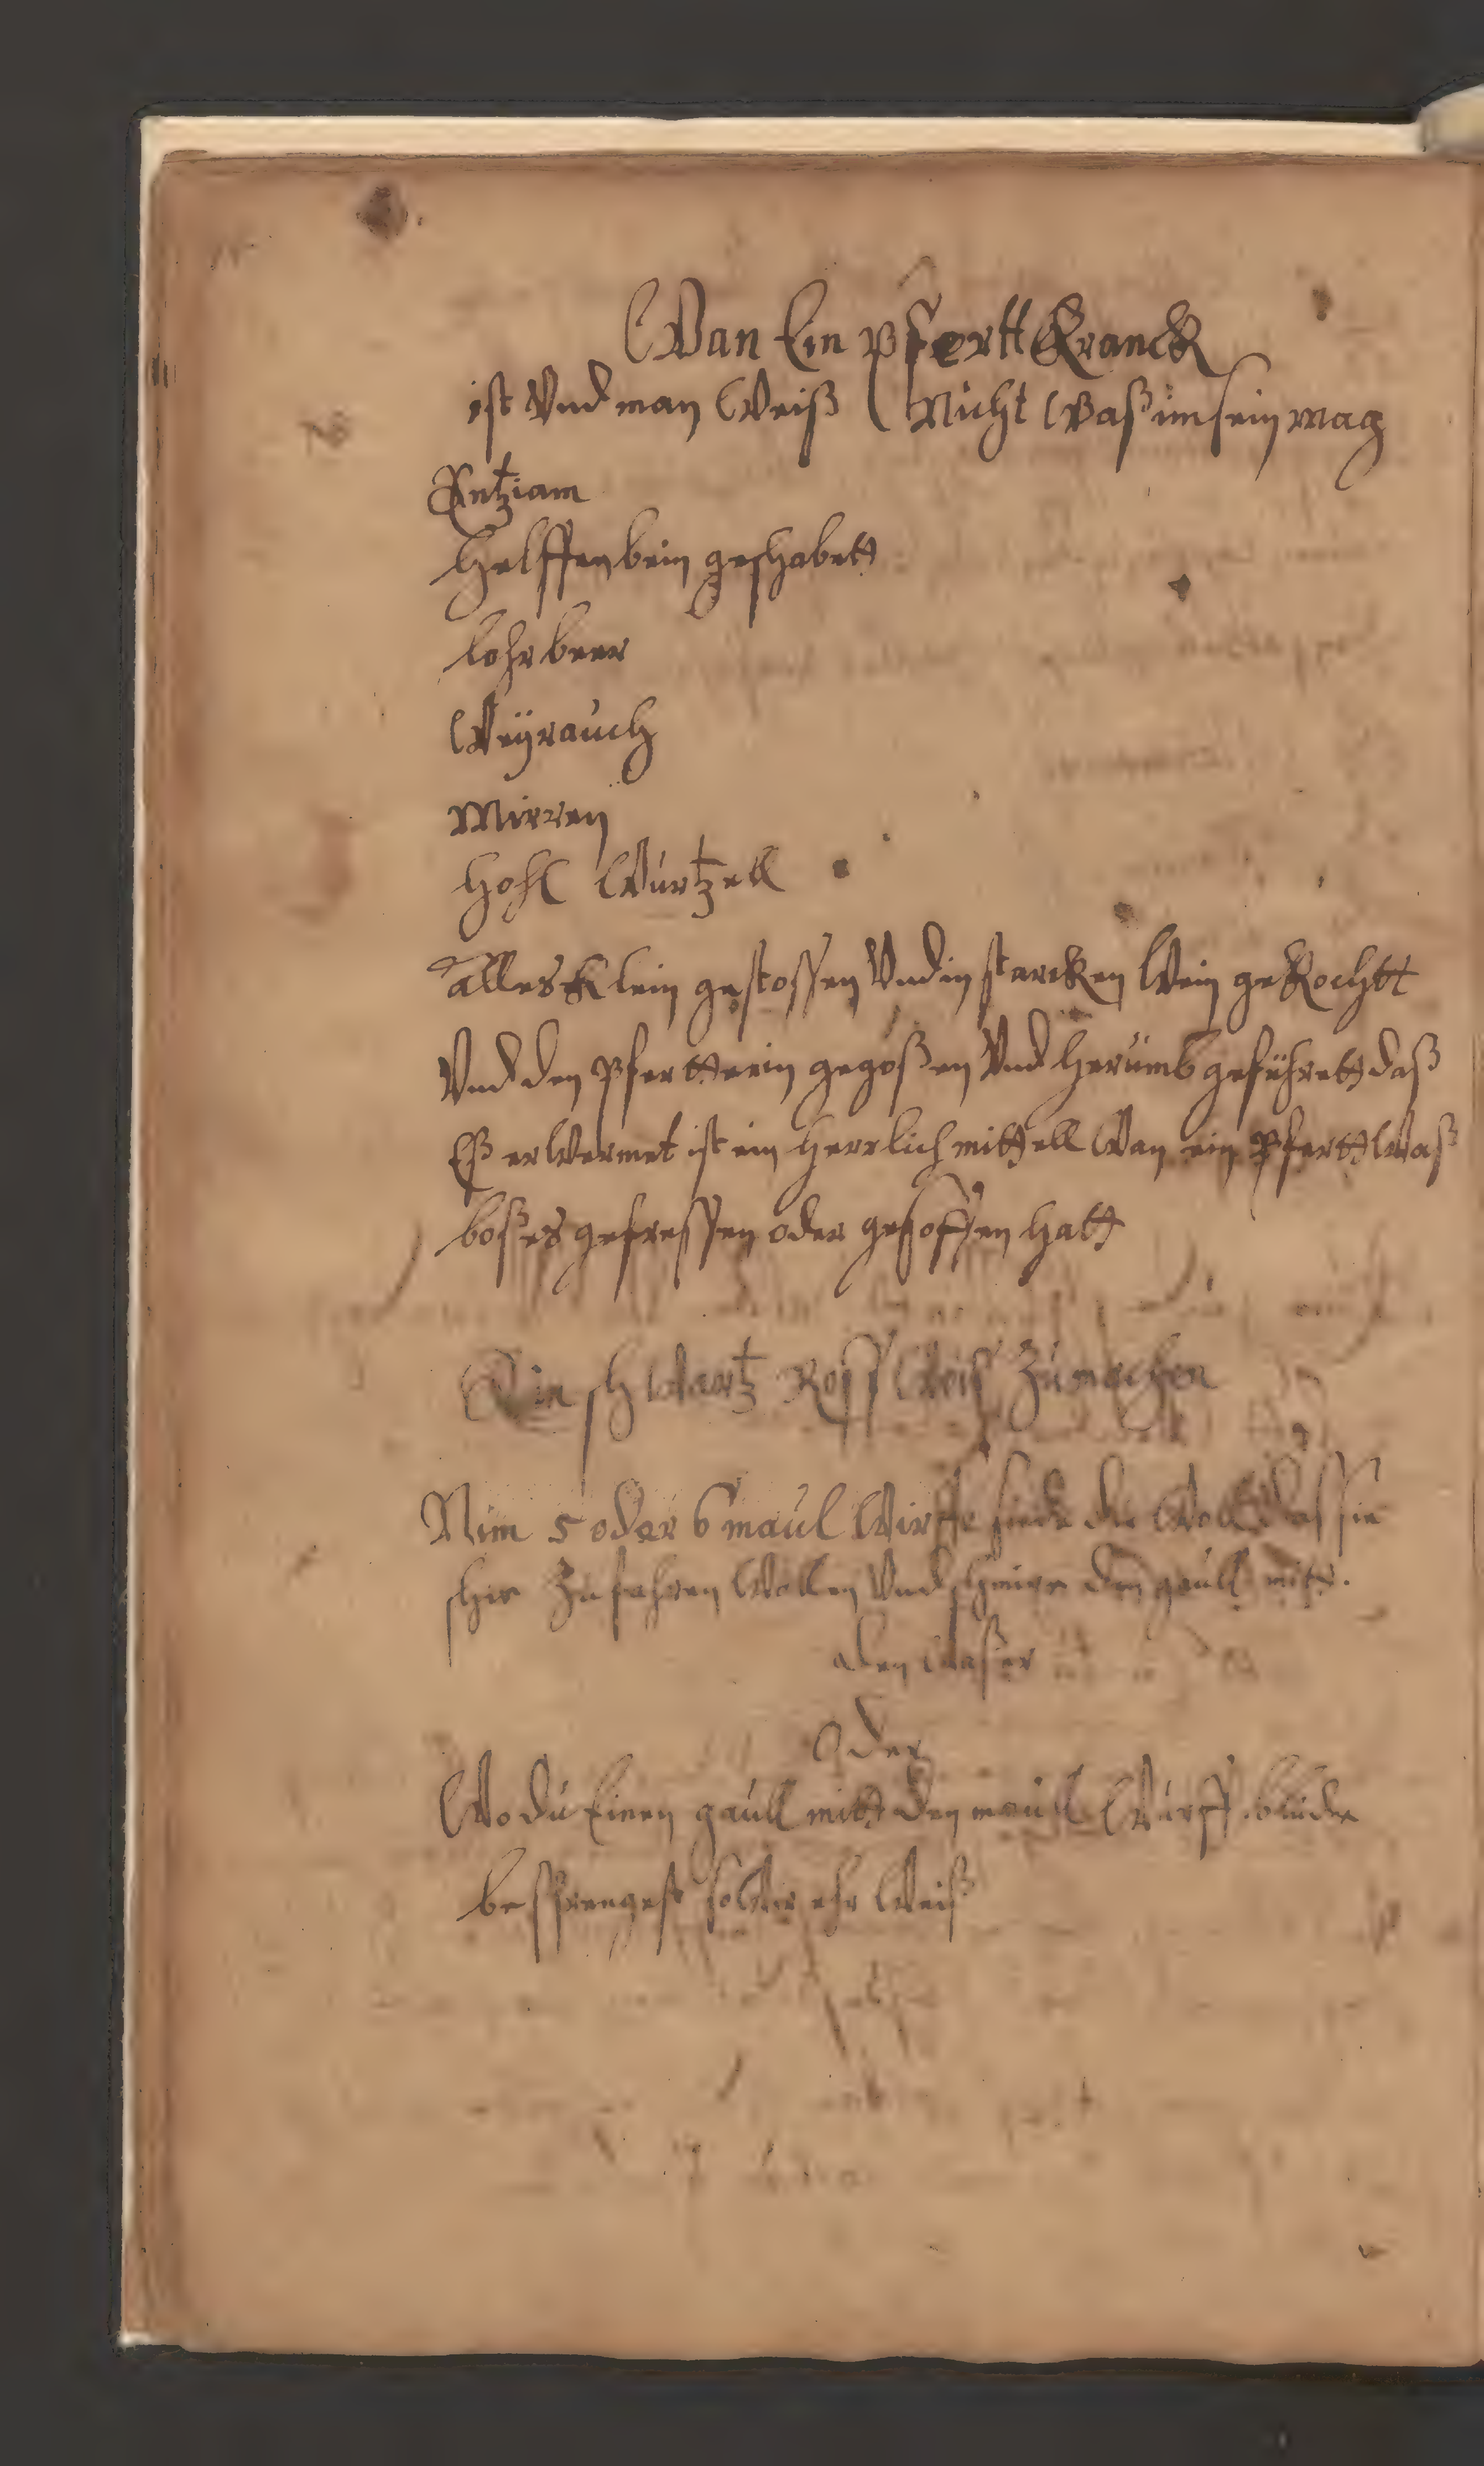 Wan Ein Pfertt Kranck
ist Vnd man Weiß Nicht Waß im sein mag
NB
Entziam
Helffenbein geschabett
lohrbeer
Weÿrauch
Mirren
Hohl Wurtzell
alles Klein gestossen Vnd in starcken Wein gekochtt
Vnd den Pfertt ein gegoßen Vnd herumb geführett daß
Eß erWermet ist ein Herrlich mittell Wan ein Pfertt Waß
boßes gefressen oder gesoffen hatt
Ein schWartz Ross Weiß Zu machen
Nim 5 oder 6 maul Wirffe siede die Woll das sie
schir Zufahren Wollen Vnd schmire den gaull mitt
den Waßer
Oder
Wo du Einen gaull mitt den maull Wurff blude
besprengest so Wir ehr Weiß